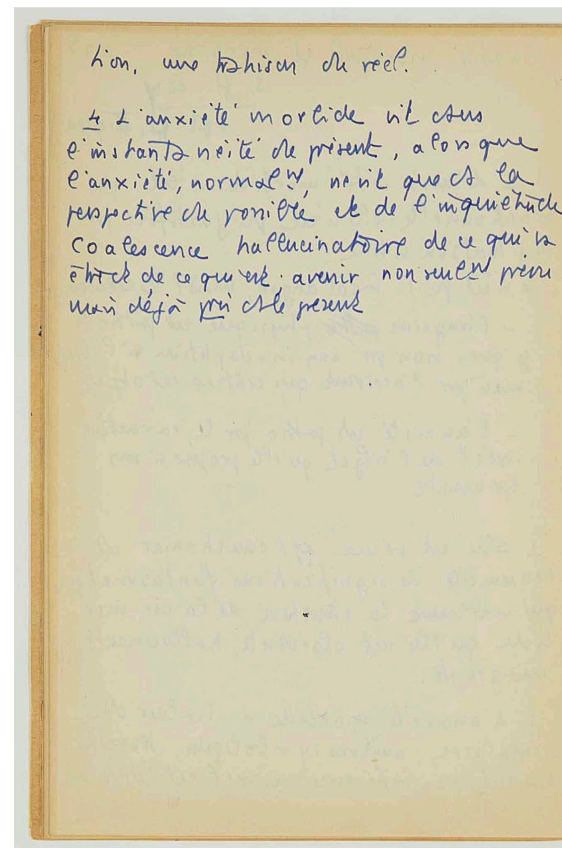 tion, une trahison du réel.
4 L'anxiété morbide vit dans
l'instantanéité du présent, alors que
l'anxiété, normalᵗ, ne vit que ds la
perspective du possible et de l'inquiétude
Coalescence hallucinatoire de ce qui va
être et de ce qui est ; avenir non seulᵗ prévu
mais déjà pris ds le présent